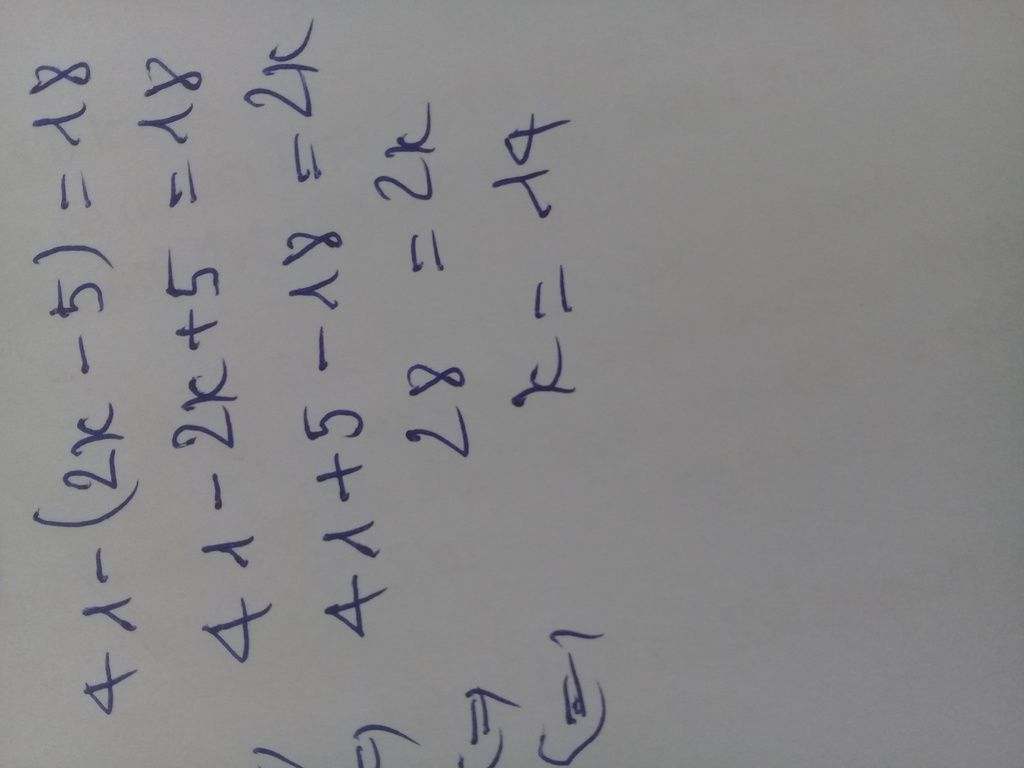 41-(2x-5)=18
41-2x+5=18
⇔ 41+5-18=2x
⇔ 28=2x
⇔ x=14